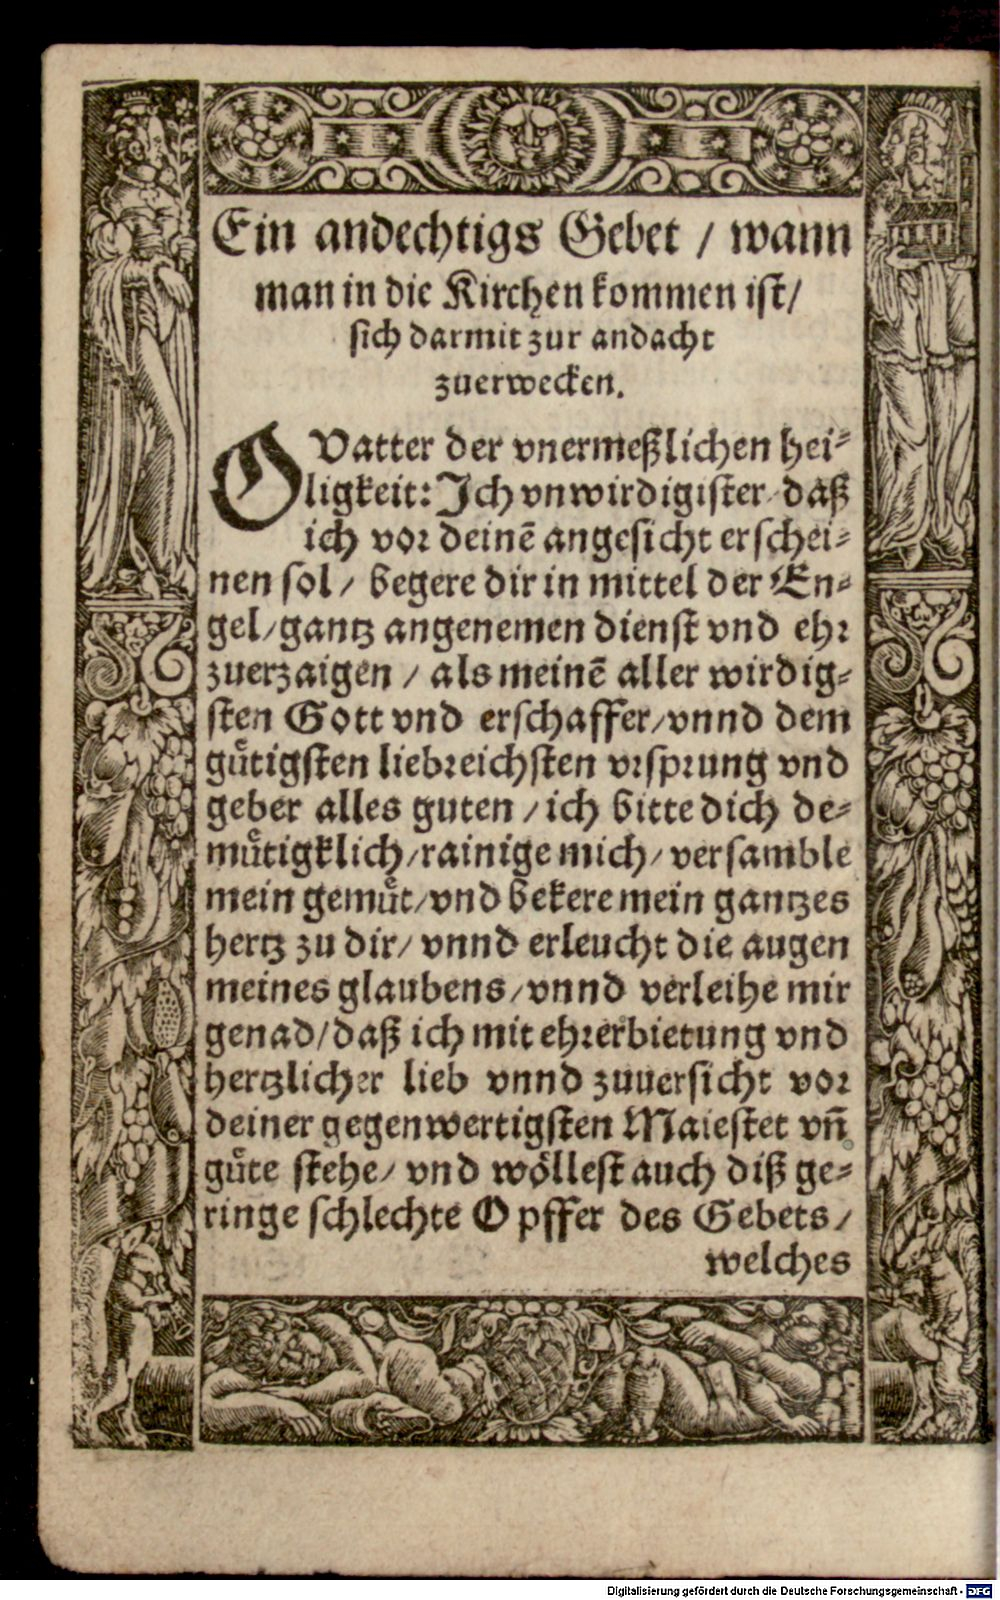 Ein andechtigs Gebet / wann
man in die Kirchen kommen ist/
sich darmit zur andacht
zuerwecken.
O Vatter der vnermeßlichen hei-
ligkeit: Ich vnwirdigister daß
ich vor deinē angesicht erschei-
nen sol / begere dir in mittel der En-
gel/gantz angenemen dienst vnd ehr
zuerzaigen / als meinē aller wirdig-
sten Gott vnd erschaffer/vnnd dem
guͤtigsten liebreichsten vrsprung vnd
geber alles guten / ich bitte dich de-
muͤtigklich/rainige mich/ versamble
mein gemuͤt/vnd bekere mein gantzes
hertz zu dir/ vnnd erleucht die augen
meines glaubens/vnnd verleihe mir
genad/daß ich mit ehrerbietung vnd
hertzlicher lieb vnnd zuuersicht vor
deiner gegenwertigsten Maiestet vn̄
guͤte stehe/ vnd woͤllest auch diß ge-
ringe schlechte Opffer des Gebets/
welches
Digitalisierung gefördert durch die Deutsche Forschungsgemeinschaft - DFG